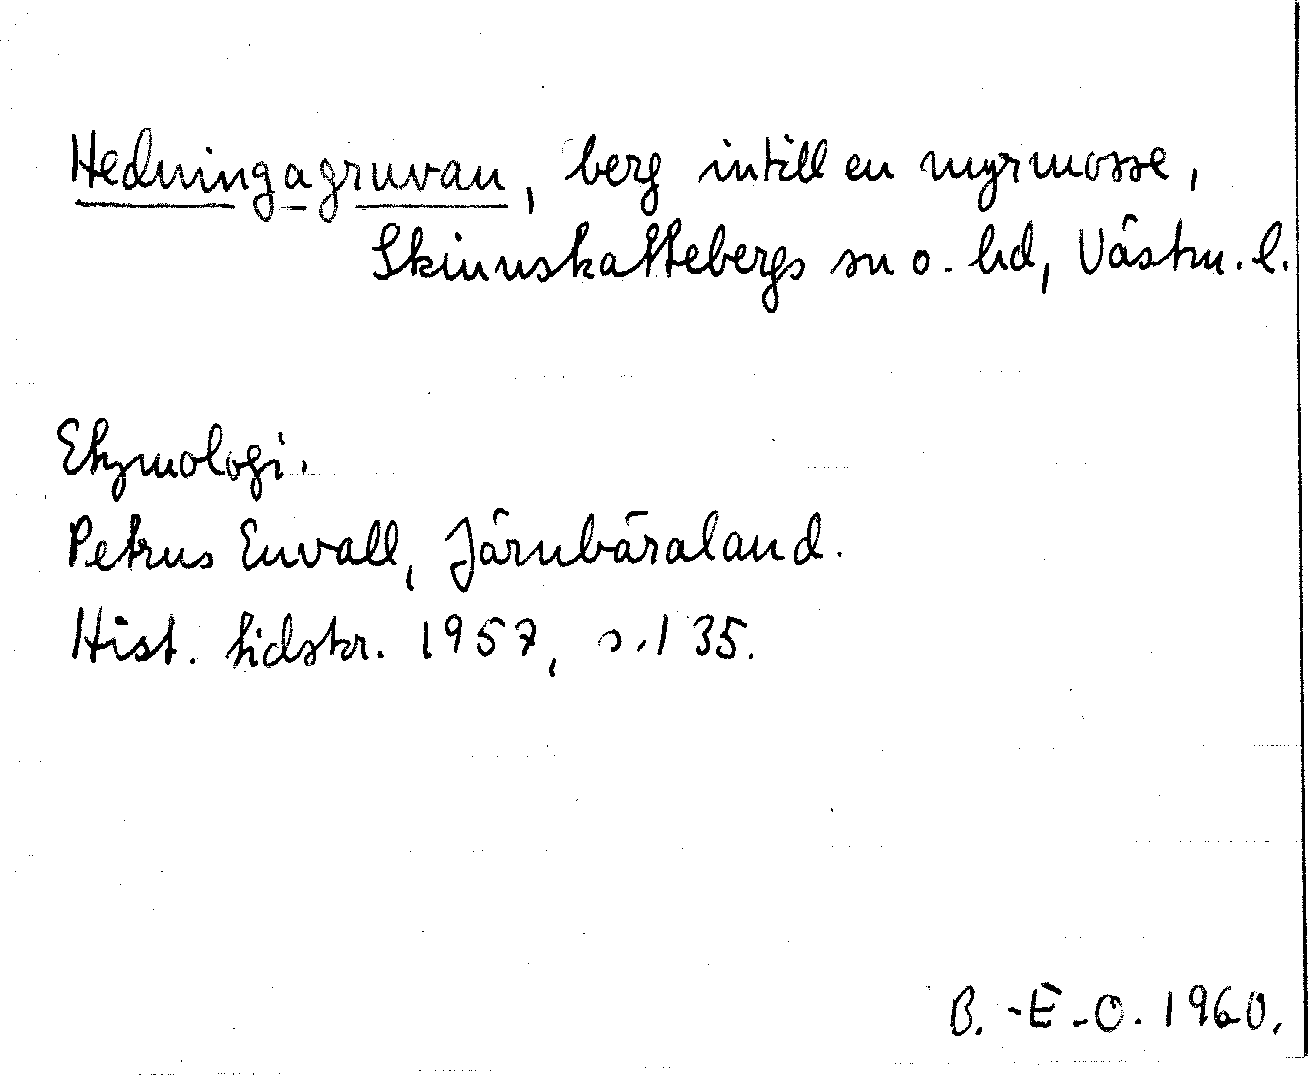 Hedningagruvan, berg intill en myrmosse,
Skinnskattebergs sn o. hd, Västm. l.
Etymologi.
Petrus Envall, Järnbäraland.
Hist. tidskr. 1957, s. 135.
B.-E-O. 1960.